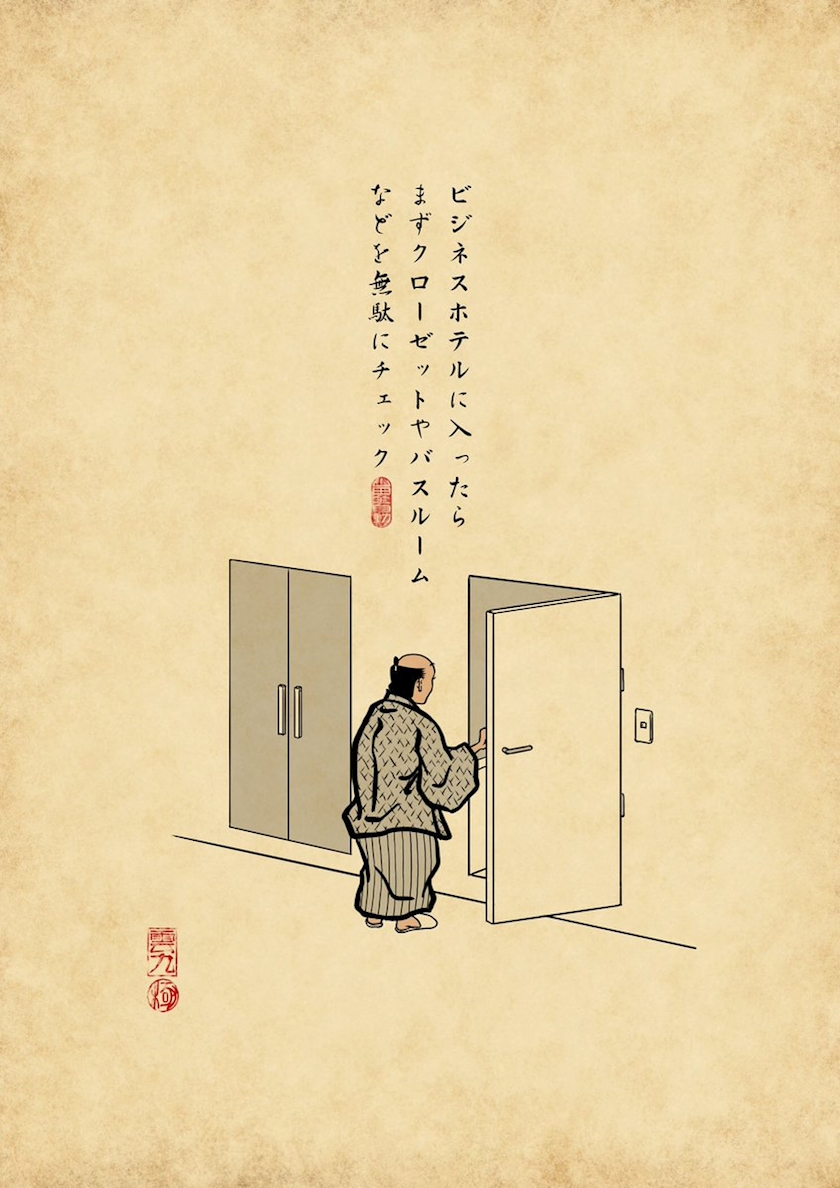 ビジネスホテルに入ったら
まずクローゼットやバスルーム
などを無駄にチェック